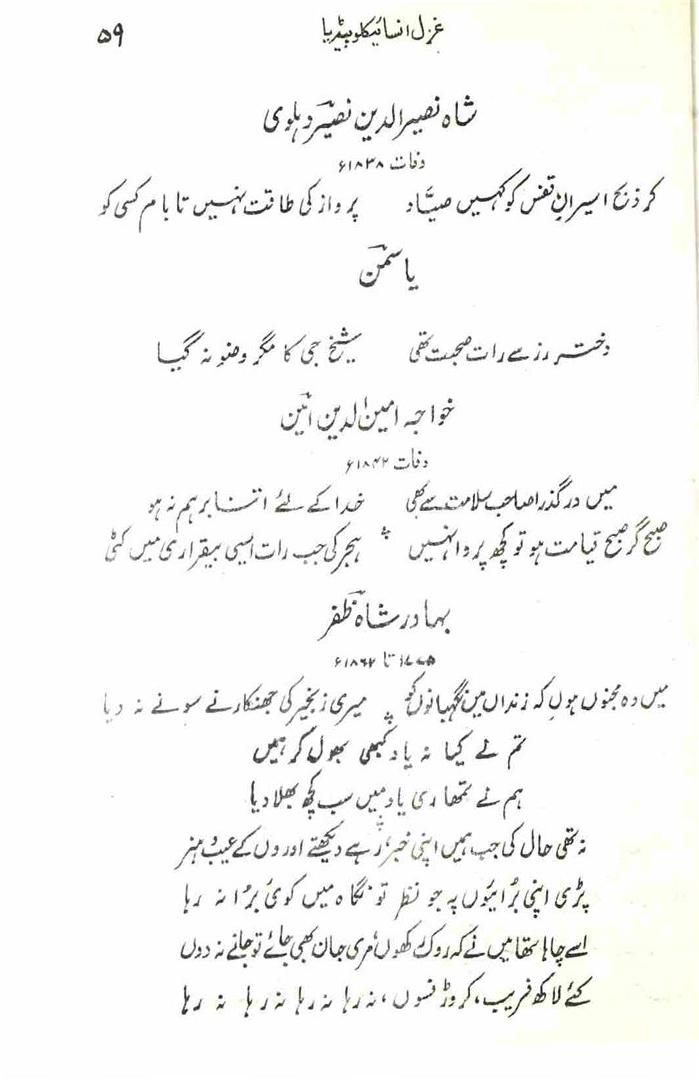 غزل انسائیکلوپیڈیا ۵۹
شاہ نصیر الدین نصیر دہلوی
وفات ۱۸۳۸ء
کر ذبح اسیرانِ قفس کو کہیں صیّاد پرواز کی طاقت نہیں تا بام کسی کو
یاسمن
دختر رز سے رات صحبت تھی شیخ جی کا مگر وضو نہ گیا
خواجہ امین الدین امین
وفات ۱۸۴۲ء
میں درگذرا صاحب سلامت سے بھی خدا کے لئے اتنا برہم نہ ہو
صبح گر صبح قیامت ہو تو کچھ پروا نہیں ہجر کی جب رات ایسی بیقراری میں کٹی
بہادر شاہ ظفر
۱۷۷۵ تا ۱۸۶۲ء
میں وہ مجنوں ہوں کہ زنداں میں نگہبانوں کو میری زنجیر کی جھنکار نے سونے نہ دیا
تم نے کیا نہ یاد کبھی بھول کر ہمیں
ہم نے تمھاری یاد میں سب کچھ بھلا دیا
نہ تھی حال کی جب ہمیں اپنی خبر، رہے دیکھتے اوروں کے عیب و ہنر
پڑی اپنی بُرائیوں پہ جو نظر تو نگاہ میں کوئی بُرا نہ رہا
اسے چاہا تھا میں نے کہ روک رکھوں، مری جان بھی جائے تو جانے نہ دوں
کئے لاکھ فریب، کروڑ فسوں، نہ رہا نہ رہا نہ رہا نہ رہا